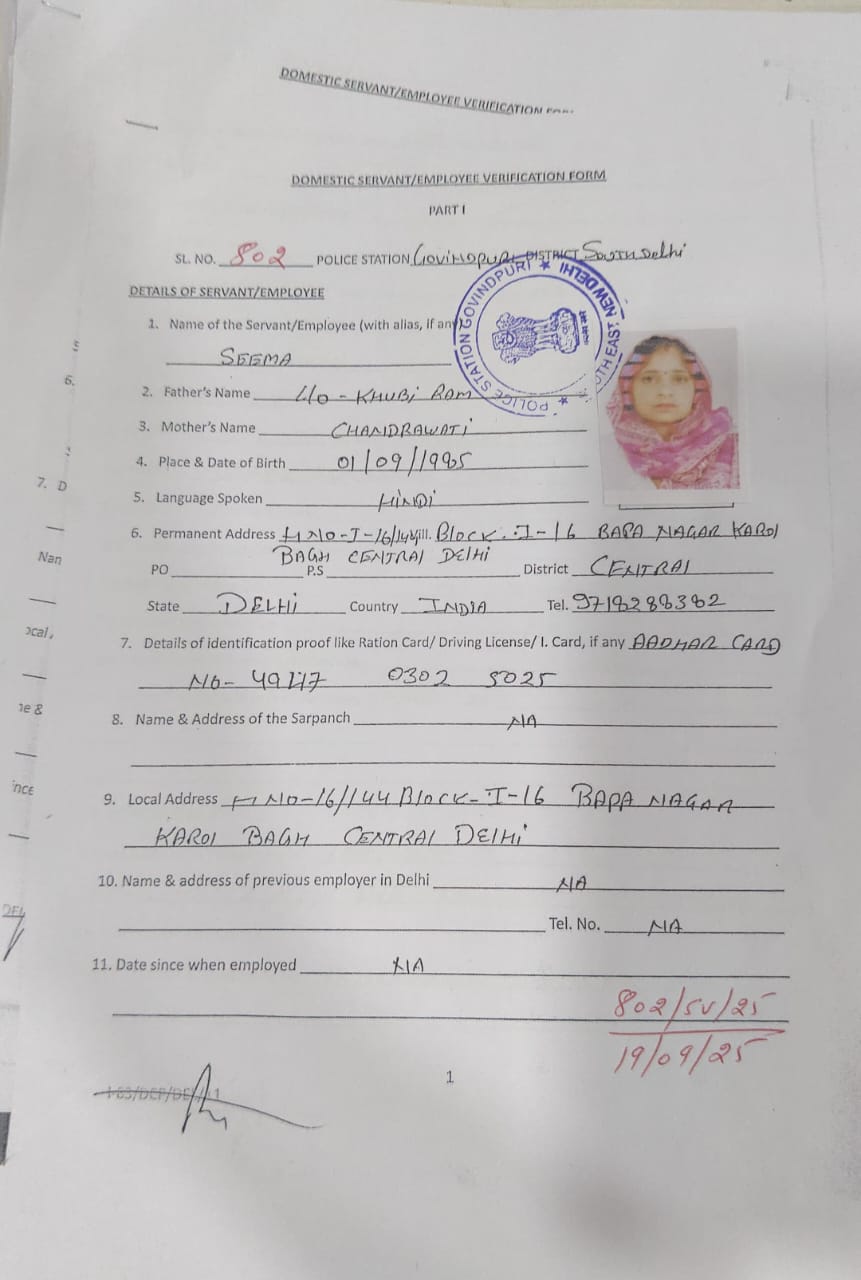 DOMESTIC SERVANT/EMPLOYEE VERIFICATION
DOMESTIC SERVANT/EMPLOYEE VERIFICATION FORM
PART I
SL. NO. 802 POLICE STATION GOVINDPURI DISTRICT South Delhi
POLICE STATION GOVINDPURI ★ NEW DELHI ★
DETAILS OF SERVANT/EMPLOYEE
1. Name of the Servant/Employee (with alias, if any)
SEEMA
2. Father's Name KHUBI RAM
3. Mother's Name CHANDRAWATI
4. Place & Date of Birth 01/09/1985
5. Language Spoken HINDI
6. Permanent Address H NO-I-16/144 Vill. Block. I-16 BAPA NAGAR KAROl
BAGH CENTRAl DElHi
PO P.S District CENTRAl
State DELHI Country INDIA Tel. 9718288382
7. Details of identification proof like Ration Card/ Driving License/ I. Card, if any AADHAR CARD
NO- 0302 5025
8. Name & Address of the Sarpanch NA
9. Local Address H NO-16/144 Block-I-16 BAPA NAGAR
KAROl BAGH CENTRAl DElHi
10. Name & address of previous employer in Delhi NA
Tel. No. NA
11. Date since when employed NA
802/SV/25
19/09/25
1
S
6.
7. D
Nan
ocal,
ne &
ince
DEL